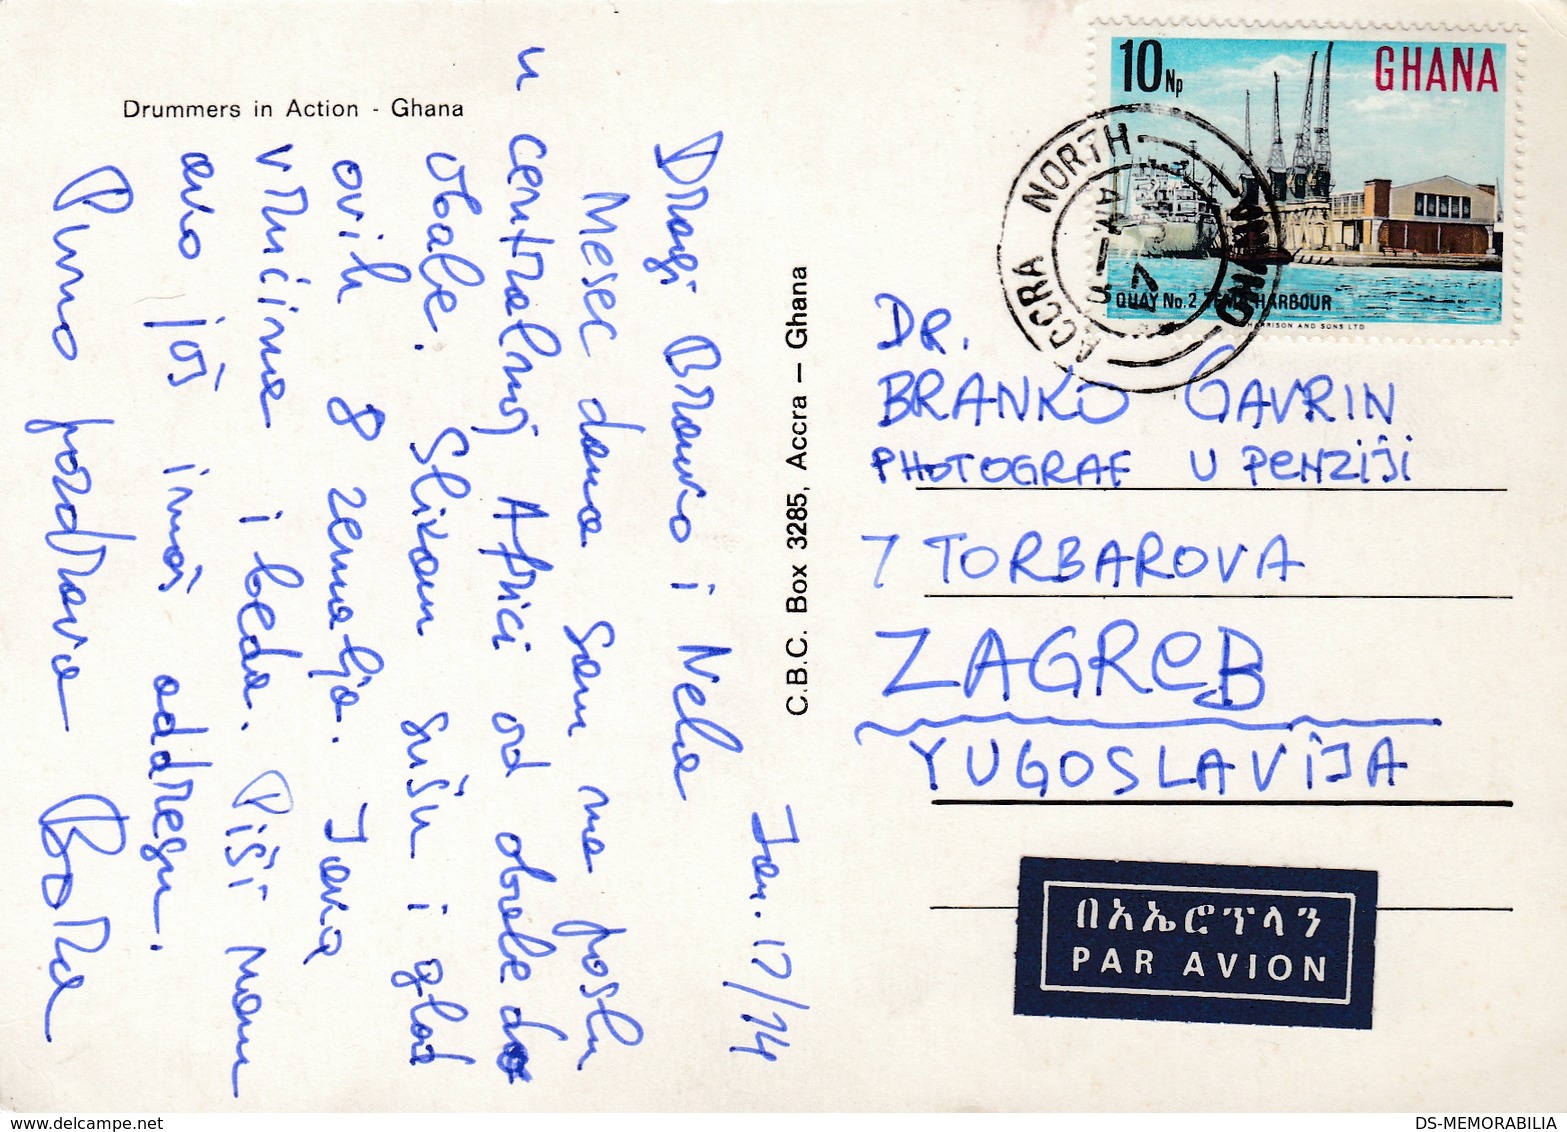 Drummers in Action - Ghana
Jan. 17/74
Dragi Branko i Nela
Mesec dana sam na poslu
u centralnoj Africi od obale do
obale. Slikam sušu i glad
ovih 8 zemalja. Tama
vrućina i beda. Piši nam
evo još imaš addresu.
Puno pozdrava Bora
C.B.C. Box 3285, Accra — Ghana
10 Np GHANA
QUAY No. 2 TEMA HARBOUR
HARRISON AND SONS LTD
ACCRA NORTH
AM-8
DR.
BRANKO GAVRIN
PHOTOGRAF U PENZIJI
7 TORBAROVA
ZAGREB
YUGOSLAVIJA
በአኤሮፕላን
PAR AVION
DS-MEMORABILIA